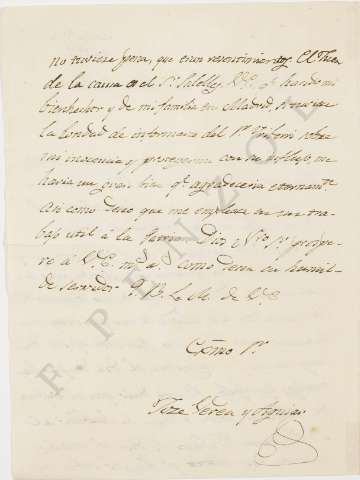 no tuviese pena, que eran resentimientos. El Fiscal
de la causa es el Sr. Silelly, V.E. qe. ha sido mi
bienhechor y de mi familia en Madrid, si tuviese
la bondad de informarse del Sr. sobre
mi inocencia y protegerme con su influjo, me
haria un gran bien qe. agradeceria eternamte.
Asi como deseo que me emplease en un tra-
bajo util á la Patria. Dios Ntro. Sr. prospe-
re á V.E. ms. as. como desea su humil-
de servidor Q. B. L. M. de V.E.
Exmo Sr.
Jose Gerea y Aguiar
F. PENZOL